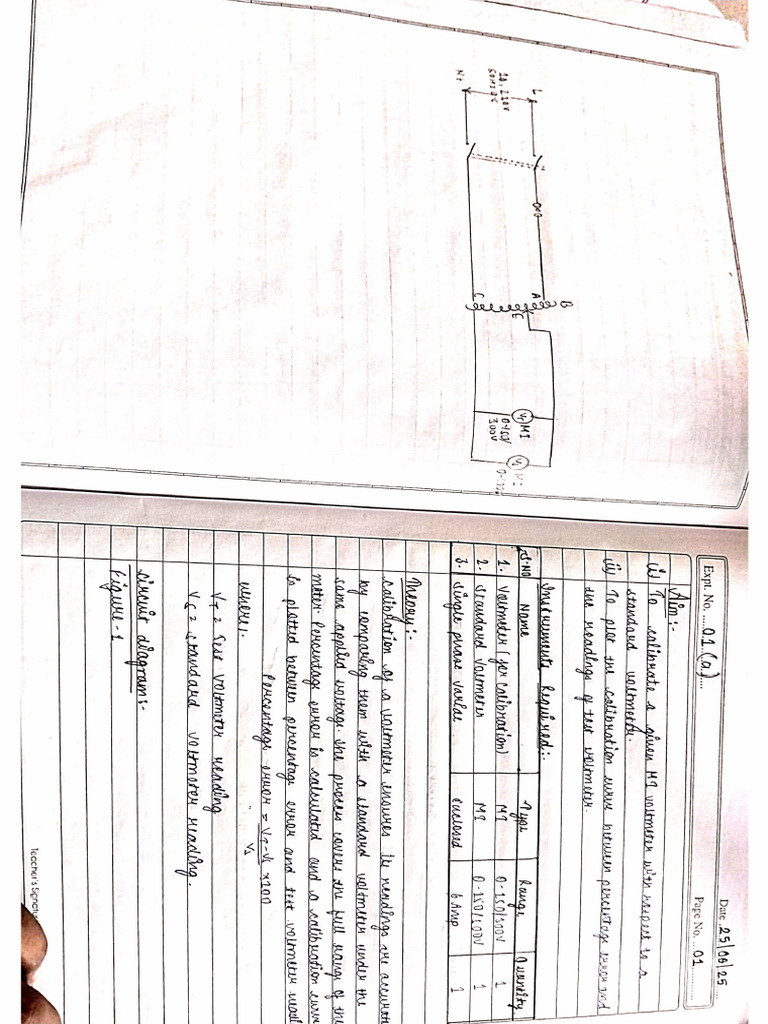 Date 25/06/25
Expt. No. 01 (a)
Page No. 01
Aim:-
(i) To calibrate a given MI voltmeter with respect to a
standard voltmeter.
(ii) To plot the calibration curve between percentage error and
the readings of test voltmeter.
Instruments Required:-
S.NO Name Type Range Quantity
1. Voltmeter (for calibration) MI 0-150/300V 1
2. Standard Voltmeter MI 0-150/300V 1
3. Single phase variac Enclosed 6 Amp 1
Theory:-
Calibration of a voltmeter ensures its readings are accurate
by comparing them with a standard voltmeter under the
same applied voltage. The process covers the full range of the
meter. Percentage error is calculated and a calibration curve
is plotted between percentage error and test voltmeter
Percentage error = VT-VS x100
VS
where:
VT = Test voltmeter reading
VS = standard voltmeter reading.
Circuit diagram:-
Figure-1
Teacher's
L
1Φ, 230V
50Hz
N
A
B
C
E
VT MI
0-150/
300V
VS MI